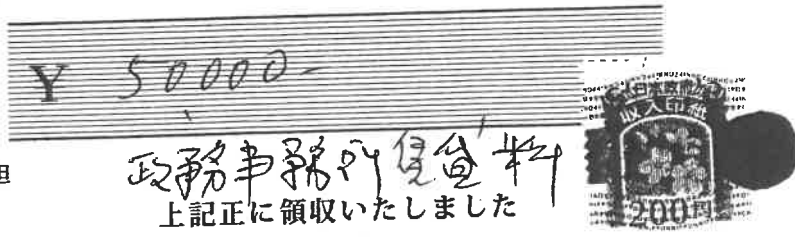 ¥ 50000-
政務事務所賃貸料
上記正に領収いたしました
日本政府
収入印紙
200円